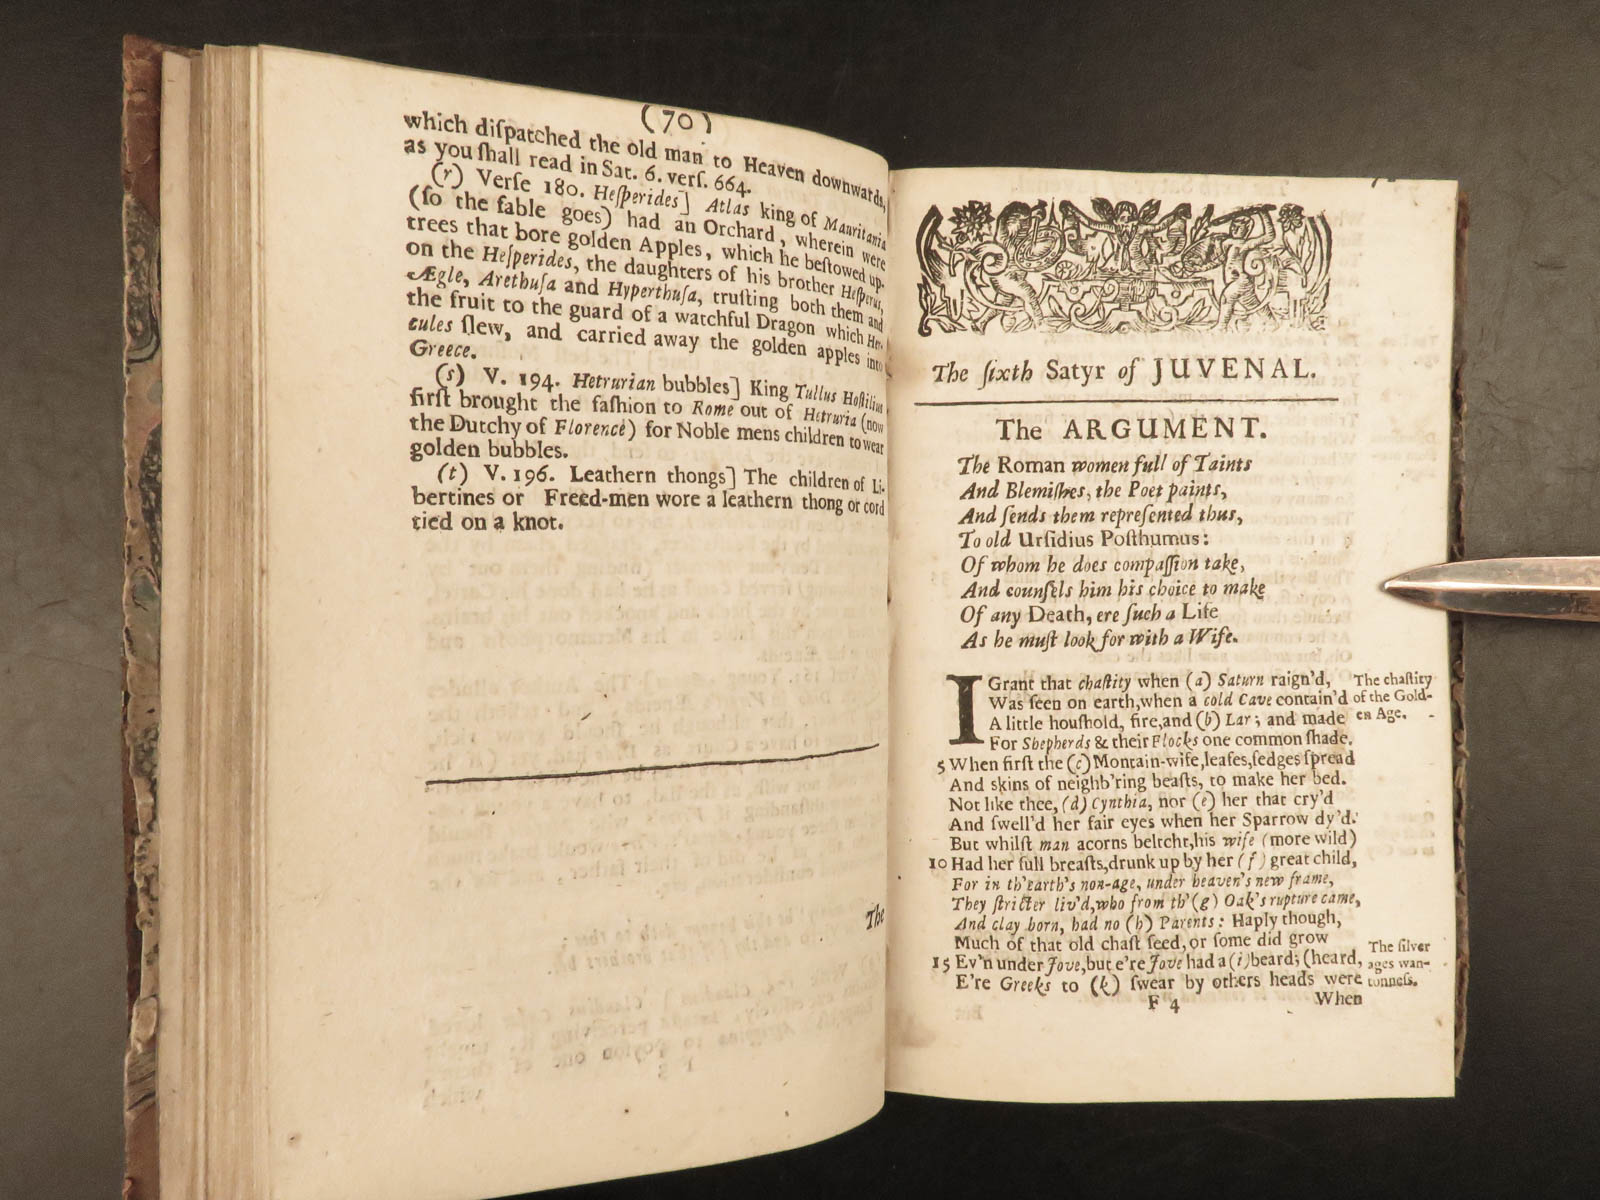 (70)
which diſpatched the old man to Heaven downwards,
as you ſhall read in Sat. 6. verſ. 664.
(r) Verſe 180. Heſperides] Atlas king of Mauritania
(ſo the fable goes) had an Orchard, wherein were
trees that bore golden Apples, which he beſtowed up-
on the Heſperides, the daughters of his brother Heſperus,
Ægle, Arethuſa and Hyperthuſa, truſting both them and
the fruit to the guard of a watchful Dragon which Her-
cules ſlew, and carried away the golden apples into
Greece.
(s) V. 194. Hetrurian bubbles] King Tullus Hoſtilius
firſt brought the faſhion to Rome out of Hetruria (now
the Dutchy of Florence) for Noble mens children to wear
golden bubbles.
(t) V. 196. Leathern thongs] The children of Li-
bertines or Freed-men wore a leathern thong or cord
tied on a knot.
The
The ſixth Satyr of JUVENAL.
The ARGUMENT.
The Roman women full of Taints
And Blemiſhes, the Poet paints,
And ſends them repreſented thus,
To old Urſidius Poſthumus:
Of whom he does compaſſion take,
And counſels him his choice to make
Of any Death, ere ſuch a Life
As he muſt look for with a Wife.
I Grant that chaſtity when (a) Saturn raign'd,
Was ſeen on earth, when a cold Cave contain'd
A little houſhold, fire, and (b) Lar; and made
For Shepherds & their Flocks one common ſhade.
The chaſtity
of the Gold-
en Age.
5 When firſt the (c) Montain-wife, leafes, ſedges ſpread
And skins of neighb'ring beaſts, to make her bed.
Not like thee, (d) Cynthia, nor (e) her that cry'd
And ſwell'd her fair eyes when her Sparrow dy'd.
But whilſt man acorns beltcht, his wife (more wild)
10 Had her full breaſts, drunk up by her (f) great child,
For in th'earth's non-age, under heaven's new frame,
They ſtricter liv'd, who from th'(g) Oak's rupture came,
And clay born, had no (h) Parents: Haply though,
Much of that old chaſt ſeed, or ſome did grow
15 Ev'n under Jove, but e're Jove had a (i) beard; (heard,
E're Greeks to (k) ſwear by others heads were
The ſilver
ages wan-
tonneſs.
F 4
When